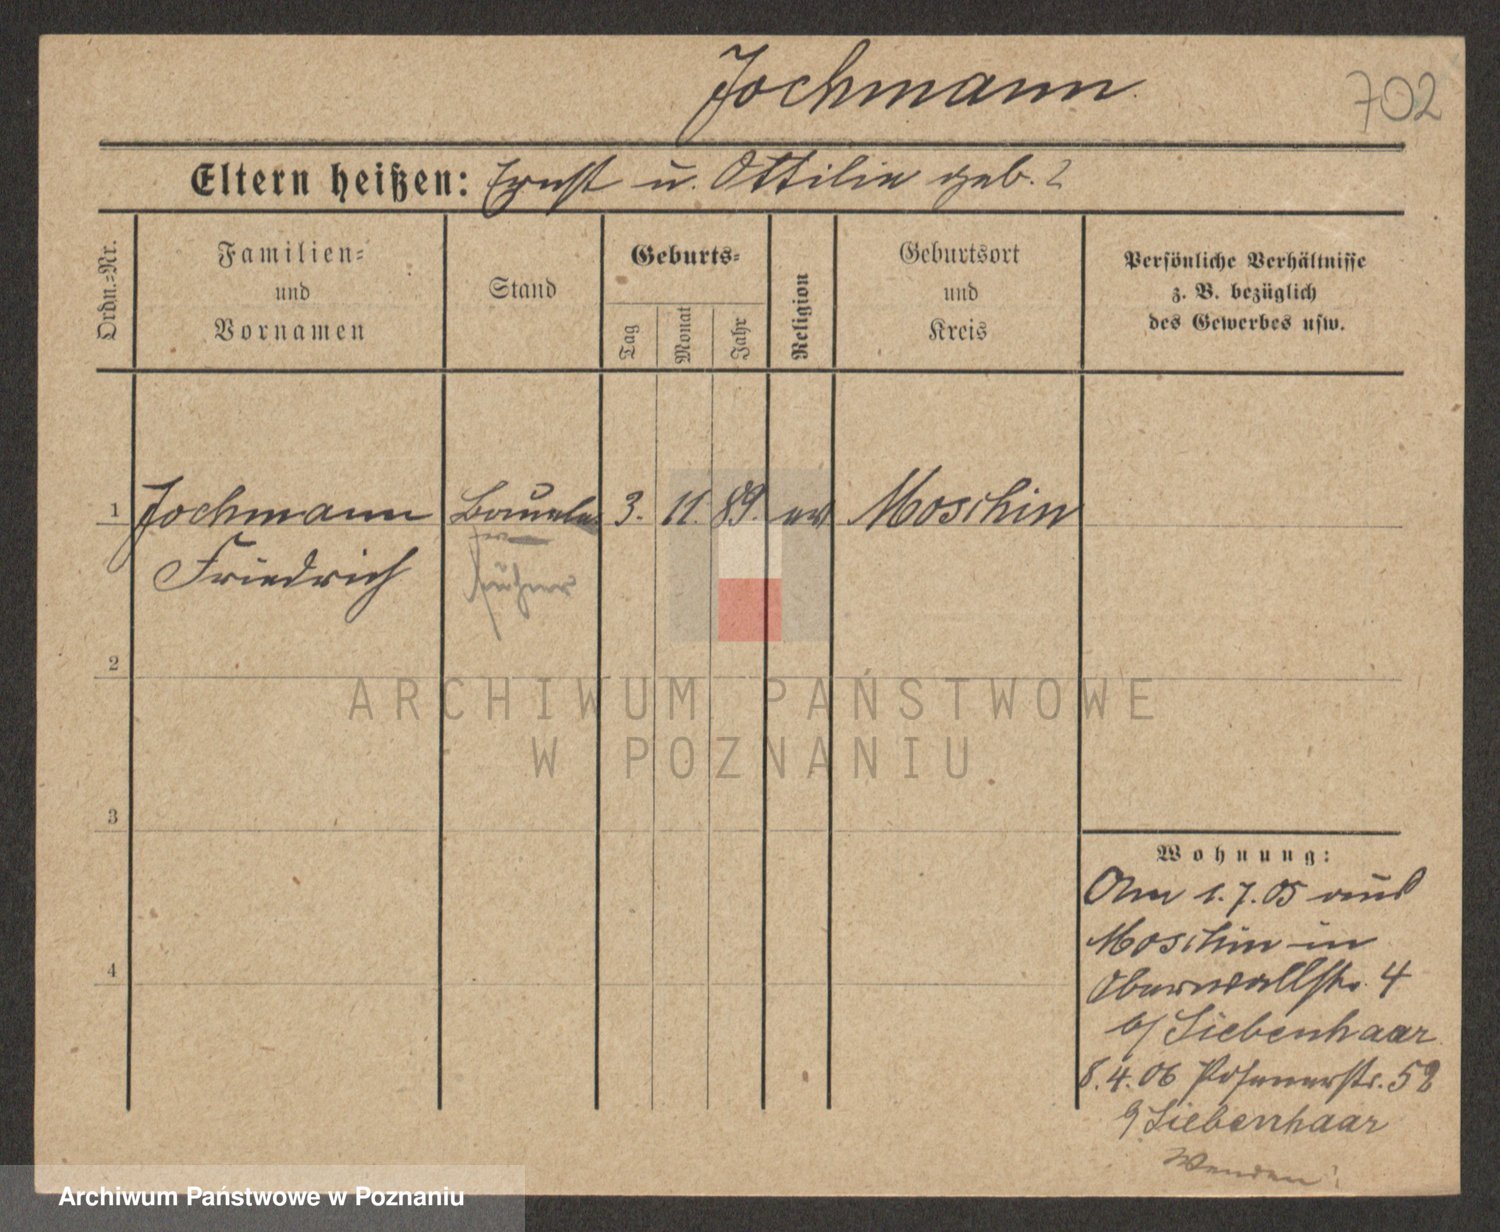 Jochmann
702
Eltern heißen: Ernst u. Ottilie geb. ?
Ordn.=Nr.
Familien=
und
Vornamen
Stand
Geburts=
Tag
Monat
Jahr
Religion
Geburtsort
und
Kreis
Persönliche Verhältnisse
z. B. bezüglich
des Gewerbes usw.
1 Jochmann 3. 11. 89. ev Moschin
Friedrich
früher
2
3
4
Wohnung:
Am 1.7.05 aus
Moschin in
Oberwallstr. 4
b/ Siebenhaar
8.4.06 Posenerstr. 52
Siebenhaar
Wenden!
ARCHIWUM PAŃSTWOWE
W POZNANIU
Archiwum Państwowe w Poznaniu